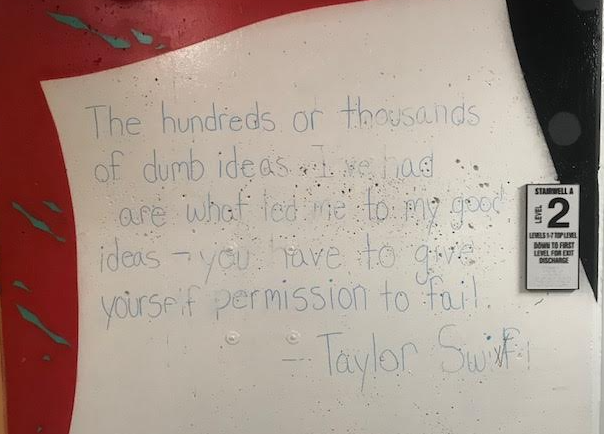 The hundreds or thousands
of dumb ideas I've had
are what led me to my good
ideas – you have to give
yourself permission to fail.
– Taylor Swift
STAIRWELL A
LEVEL 2
LEVELS 1-7 TOP LEVEL
DOWN TO FIRST
LEVEL FOR EXIT
DISCHARGE